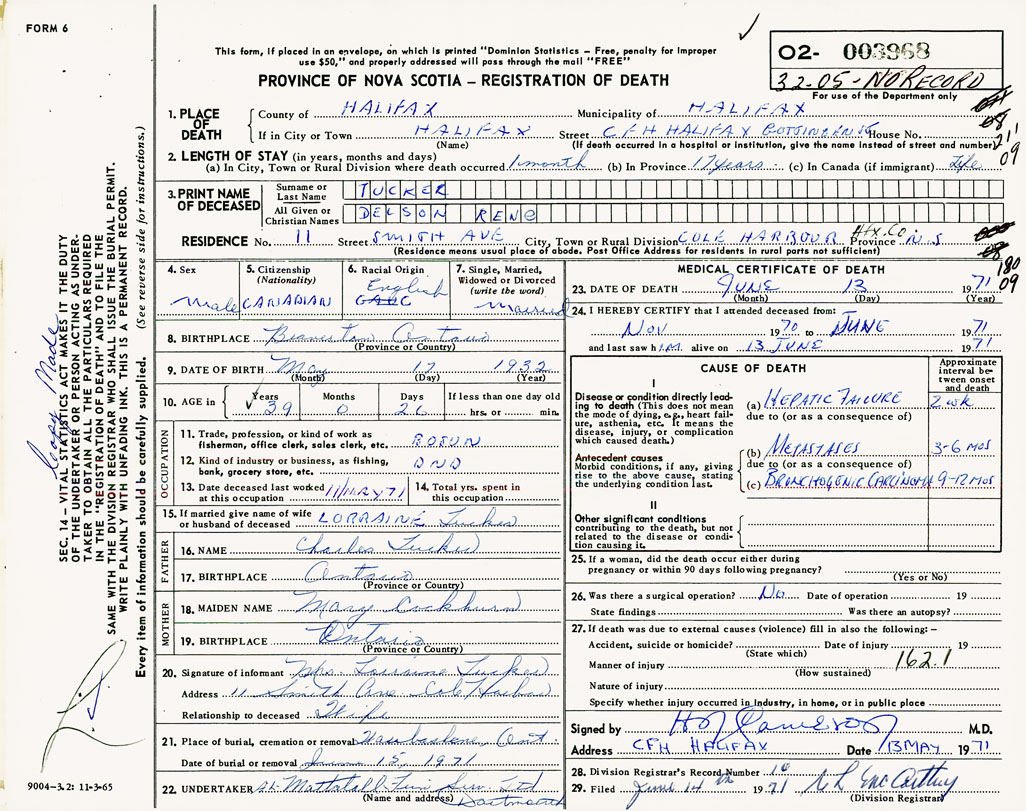 FORM 6
This form, if placed in an envelope, on which is printed "Dominion Statistics – Free, penalty for improper
use $50," and properly addressed will pass through the mail "FREE"
PROVINCE OF NOVA SCOTIA – REGISTRATION OF DEATH
02- 003968
32-05-NO RECORD
For use of the Department only
1. PLACE OF DEATH
County of HALIFAX Municipality of HALIFAX
If in City or Town HALIFAX Street CFH HALIFAX House No.
(Name) (If death occurred in a hospital or institution, give the name instead of street and number)
211
09
2. LENGTH OF STAY (in years, months and days)
(a) In City, Town or Rural Division where death occurred 1 month (b) In Province 17 years (c) In Canada (if immigrant) Life
3. PRINT NAME OF DECEASED
Surname or Last Name TUCKER
All Given or Christian Names DELSON RENE
RESIDENCE No. 11 Street SMITH AVE City, Town or Rural Division COLE HARBOUR Hfx.Co. Province N.S
(Residence means usual place of abode. Post Office Address for residents in rural parts not sufficient)
180
09
4. Sex
male
5. Citizenship (Nationality)
CANADIAN
6. Racial Origin
English
7. Single, Married, Widowed or Divorced (write the word)
married
8. BIRTHPLACE Beaverton Ontario
(Province or Country)
9. DATE OF BIRTH May 17 1932
(Month) (Day) (Year)
10. AGE in Years 39 Months 0 Days 26 If less than one day old hrs. or min.
OCCUPATION
11. Trade, profession, or kind of work as fisherman, office clerk, sales clerk, etc. BOSUN
12. Kind of industry or business, as fishing, bank, grocery store, etc. DND
13. Date deceased last worked at this occupation 11/MAY 71 14. Total yrs. spent in this occupation
15. If married give name of wife or husband of deceased LORRAINE Tucker
FATHER
16. NAME Charles Tucker
17. BIRTHPLACE Ontario
(Province or Country)
MOTHER
18. MAIDEN NAME Mary Cockburn
19. BIRTHPLACE Ontario
(Province or Country)
20. Signature of informant Mrs Lorraine Tucker
Address 11 Smith Ave Cole Harbour
Relationship to deceased Wife
21. Place of burial, cremation or removal Waubashene, Ont
Date of burial or removal June 15, 1971
22. UNDERTAKER Mattatall Fun Ser. Ltd
(Name and address) Dartmouth
MEDICAL CERTIFICATE OF DEATH
23. DATE OF DEATH JUNE 13 1971
(Month) (Day) (Year)
24. I HEREBY CERTIFY that I attended deceased from:
Nov 1970 to JUNE 1971
and last saw him alive on 13 JUNE 1971
CAUSE OF DEATH
Approximate interval between onset and death
I
Disease or condition directly leading to death (This does not mean the mode of dying, e.g., heart failure, asthenia, etc. It means the disease, injury, or complication which caused death.)
(a) HEPATIC FAILURE 2 wk
due to (or as a consequence of)
Antecedent causes
Morbid conditions, if any, giving rise to the above cause, stating the underlying condition last.
(b) METASTASES 3-6 MOS
due to (or as a consequence of)
(c) BRONCHOGENIC CARCINOMA 9-12 MOS
II
Other significant conditions contributing to the death, but not related to the disease or condition causing it.
25. If a woman, did the death occur either during
pregnancy or within 90 days following pregnancy?
(Yes or No)
26. Was there a surgical operation? No Date of operation 19
State findings Was there an autopsy?
27. If death was due to external causes (violence) fill in also the following: –
Accident, suicide or homicide? Date of injury 19
(State which)
162.1
Manner of injury
(How sustained)
Nature of injury
Specify whether injury occurred in industry, in home, or in public place
Signed by Cameron M.D.
Address CFH HALIFAX Date 13 MAY 1971
28. Division Registrar's Record Number
29. Filed June 14th 1971
(Division Registrar)
SEC. 14 – VITAL STATISTICS ACT MAKES IT THE DUTY
OF THE UNDERTAKER OR PERSON ACTING AS UNDER-
TAKER TO OBTAIN ALL THE PARTICULARS REQUIRED
IN THE "REGISTRATION OF DEATH" AND TO FILE THE
SAME WITH THE DIVISION REGISTRAR WHO SHALL ISSUE THE BURIAL PERMIT.
WRITE PLAINLY WITH UNFADING INK. THIS IS A PERMANENT RECORD.
Every item of information should be carefully supplied. (See reverse side for instructions.)
Copy Made
9004-3.2: 11-3-65